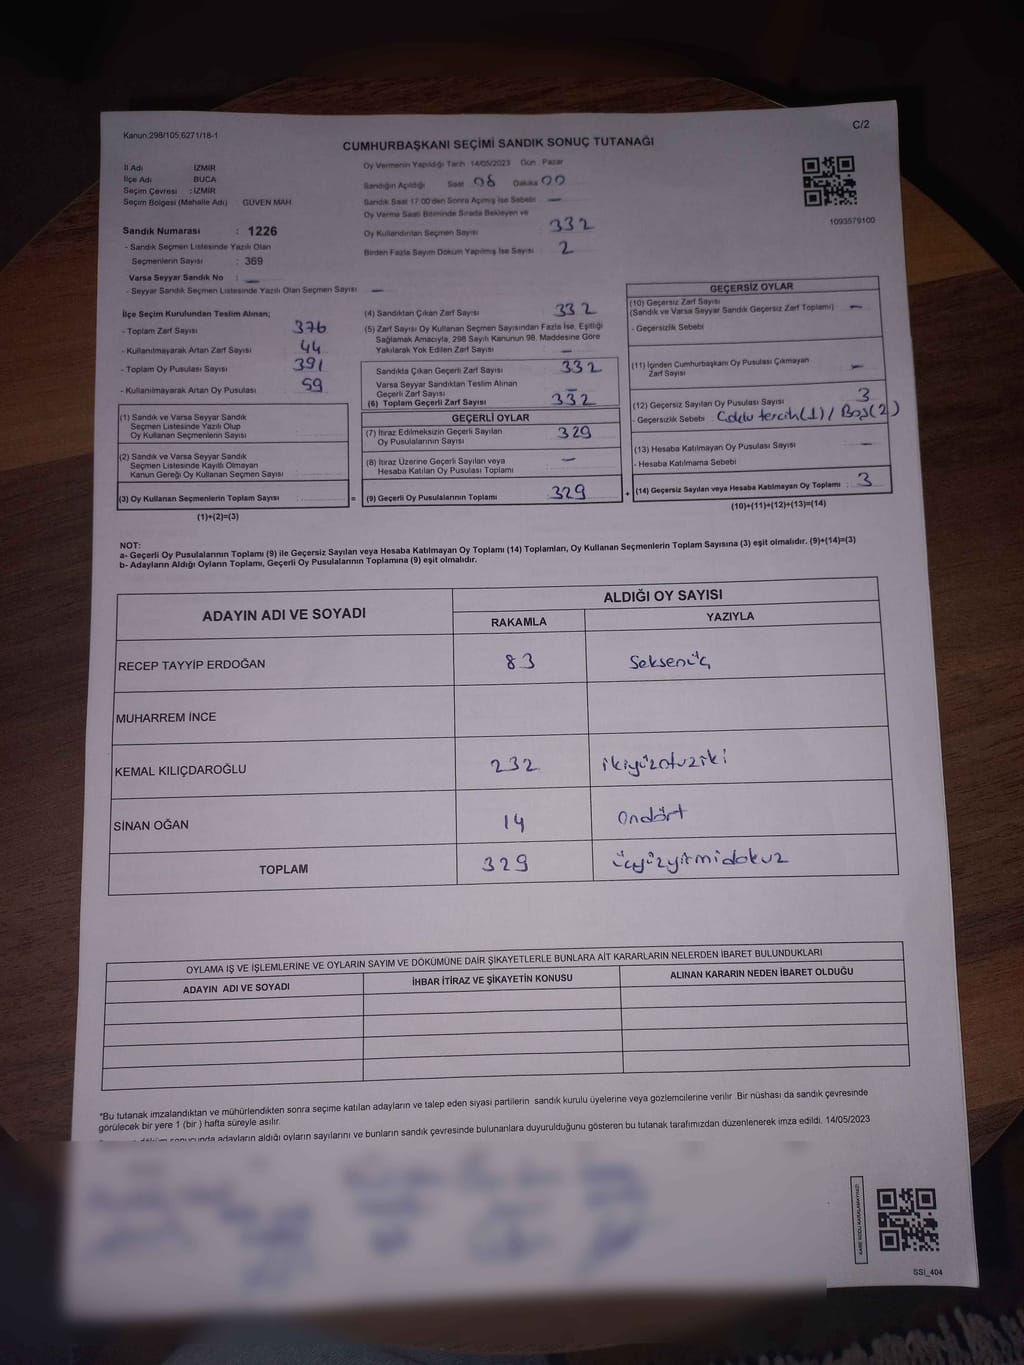 Kanun:298/105;6271/18-1
C/2
CUMHURBAŞKANI SEÇİMİ SANDIK SONUÇ TUTANAĞI
İl Adı İZMİR
İlçe Adı BUCA
Seçim Çevresi : İZMİR
Seçim Bölgesi (Mahalle Adı) GÜVEN MAH.
Sandık Numarası : 1226
- Sandık Seçmen Listesinde Yazılı Olan
Seçmenlerin Sayısı : 369
Varsa Seyyar Sandık No : —
- Seyyar Sandık Seçmen Listesinde Yazılı Olan Seçmen Sayısı —
Oy Vermenin Yapıldığı Tarih : 14/05/2023 Gün : Pazar
Sandığın Açıldığı Saat 08 Dakika 00
Sandık Saat 17.00'den Sonra Açımış İse Sebebi —
Oy Verme Saati Bitiminde Sırada Bekleyen ve
Oy Kullandırılan Seçmen Sayısı 332
Birden Fazla Sayım Döküm Yapılmış İse Sayısı 2
1093579100
İlçe Seçim Kurulundan Teslim Alınan;
- Toplam Zarf Sayısı 376
- Kullanılmayarak Artan Zarf Sayısı 44
- Toplam Oy Pusulası Sayısı 391
- Kullanılmayarak Artan Oy Pusulası 59
(1) Sandık ve Varsa Seyyar Sandık
Seçmen Listesinde Yazılı Olup
Oy Kullanan Seçmenlerin Sayısı
(2) Sandık ve Varsa Seyyar Sandık
Seçmen Listesinde Kayıtlı Olmayan
Kanun Gereği Oy Kullanan Seçmen Sayısı
(3) Oy Kullanan Seçmenlerin Toplam Sayısı =
(1)+(2)=(3)
(4) Sandıktan Çıkan Zarf Sayısı 332
(5) Zarf Sayısı Oy Kullanan Seçmen Sayısından Fazla İse, Eşitliği
Sağlamak Amacıyla, 298 Sayılı Kanunun 98. Maddesine Göre
Yakılarak Yok Edilen Zarf Sayısı —
Sandıkta Çıkan Geçerli Zarf Sayısı 332
Varsa Seyyar Sandıktan Teslim Alınan
Geçerli Zarf Sayısı —
(6) Toplam Geçerli Zarf Sayısı 332
GEÇERLİ OYLAR
(7) İtiraz Edilmeksizin Geçerli Sayılan
Oy Pusulalarının Sayısı 329
(8) İtiraz Üzerine Geçerli Sayılan veya
Hesaba Katılan Oy Pusulası Toplamı —
(9) Geçerli Oy Pusulalarının Toplamı 329 +
GEÇERSİZ OYLAR
(10) Geçersiz Zarf Sayısı
(Sandık ve Varsa Seyyar Sandık Geçersiz Zarf Toplamı) —
- Geçersizlik Sebebi
(11) İçinden Cumhurbaşkanı Oy Pusulası Çıkmayan
Zarf Sayısı —
(12) Geçersiz Sayılan Oy Pusulası Sayısı 3
- Geçersizlik Sebebi : Çoklu tercih(1) / Boş(2)
(13) Hesaba Katılmayan Oy Pusulası Sayısı —
- Hesaba Katılmama Sebebi
(14) Geçersiz Sayılan veya Hesaba Katılmayan Oy Toplamı : 3
(10)+(11)+(12)+(13)=(14)
NOT:
a- Geçerli Oy Pusulalarının Toplamı (9) ile Geçersiz Sayılan veya Hesaba Katılmayan Oy Toplamı (14) Toplamları, Oy Kullanan Seçmenlerin Toplam Sayısına (3) eşit olmalıdır. (9)+(14)=(3)
b- Adayların Aldığı Oyların Toplamı, Geçerli Oy Pusulalarının Toplamına (9) eşit olmalıdır.
ADAYIN ADI VE SOYADI
ALDIĞI OY SAYISI
RAKAMLA YAZIYLA
RECEP TAYYİP ERDOĞAN 83 Seksenüç
MUHARREM İNCE
KEMAL KILIÇDAROĞLU 232 ikiyüzotuziki
SİNAN OĞAN 14 Ondört
TOPLAM 329 üçyüzyirmidokuz
OYLAMA İŞ VE İŞLEMLERİNE VE OYLARIN SAYIM VE DÖKÜMÜNE DAİR ŞİKAYETLERLE BUNLARA AİT KARARLARIN NELERDEN İBARET BULUNDUKLARI
ADAYIN ADI VE SOYADI İHBAR İTİRAZ VE ŞİKAYETİN KONUSU ALINAN KARARIN NEDEN İBARET OLDUĞU
*Bu tutanak imzalandıktan ve mühürlendikten sonra seçime katılan adayların ve talep eden siyasi partilerin sandık kurulu üyelerine veya gözlemcilerine verilir. Bir nüshası da sandık çevresinde
görülecek bir yere 1 (bir ) hafta süreyle asılır.
sonucunda adayların aldığı oyların sayılarını ve bunların sandık çevresinde bulunanlara duyurulduğunu gösteren bu tutanak tarafımızdan düzenlenerek imza edildi. 14/05/2023
KARE KODU KARALAMAYINIZ!
SSI_404